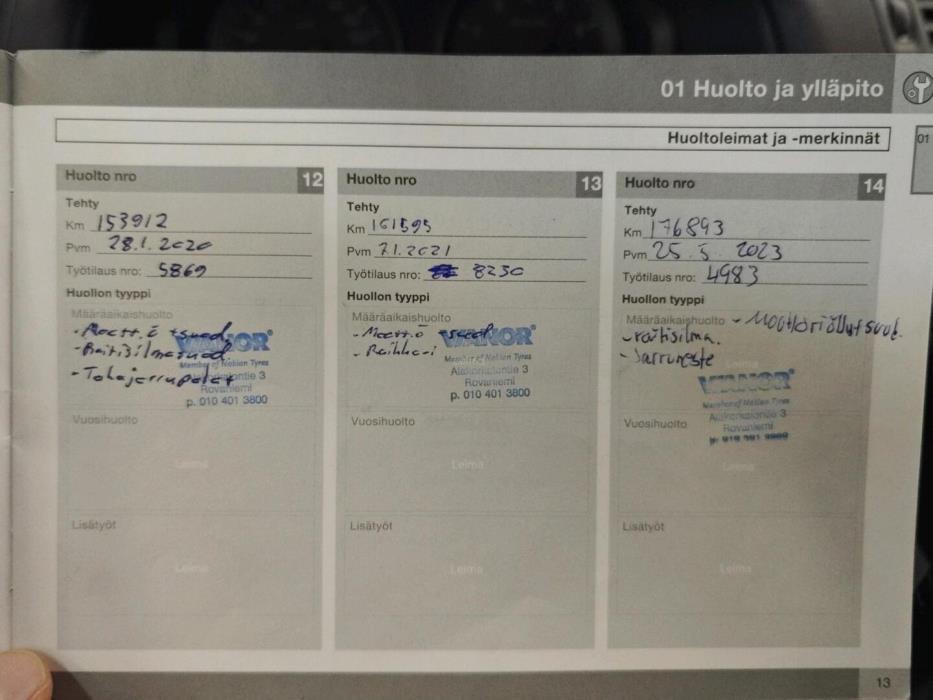 01 Huolto ja ylläpito
Huoltoleimat ja -merkinnät
01
Huolto nro 12
Tehty
Km 153912
Pvm 28.1.2020
Työtilaus nro: 5869
Huollon tyyppi
Määräaikaishuolto
- Moott.ö + suod.
- Raitisilmasuod.
- Takajarrupalat
VIANOR
Member of Nokian Tyres
Alakorkalontie 3
Rovaniemi
p. 010 401 3800
Vuosihuolto
Leima
Lisätyöt
Leima
Huolto nro 13
Tehty
Km 161595
Pvm 7.1.2021
Työtilaus nro: 8230
Huollon tyyppi
Määräaikaishuolto
- Moott.ö +suod
- Raikk
VIANOR
Member of Nokian Tyres
Alakorkalontie 3
Rovaniemi
p. 010 401 3800
Vuosihuolto
Leima
Lisätyöt
Leima
Huolto nro 14
Tehty
Km 176893
Pvm 25.5. 2023
Työtilaus nro: 4983
Huollon tyyppi
Määräaikaishuolto - Moottoriöljyt suod.
- raitisilma.
- Jarruneste
VIANOR
Member of Nokian Tyres
Alakorkalontie 3
Rovaniemi
Vuosihuolto
Leima
Lisätyöt
Leima
13